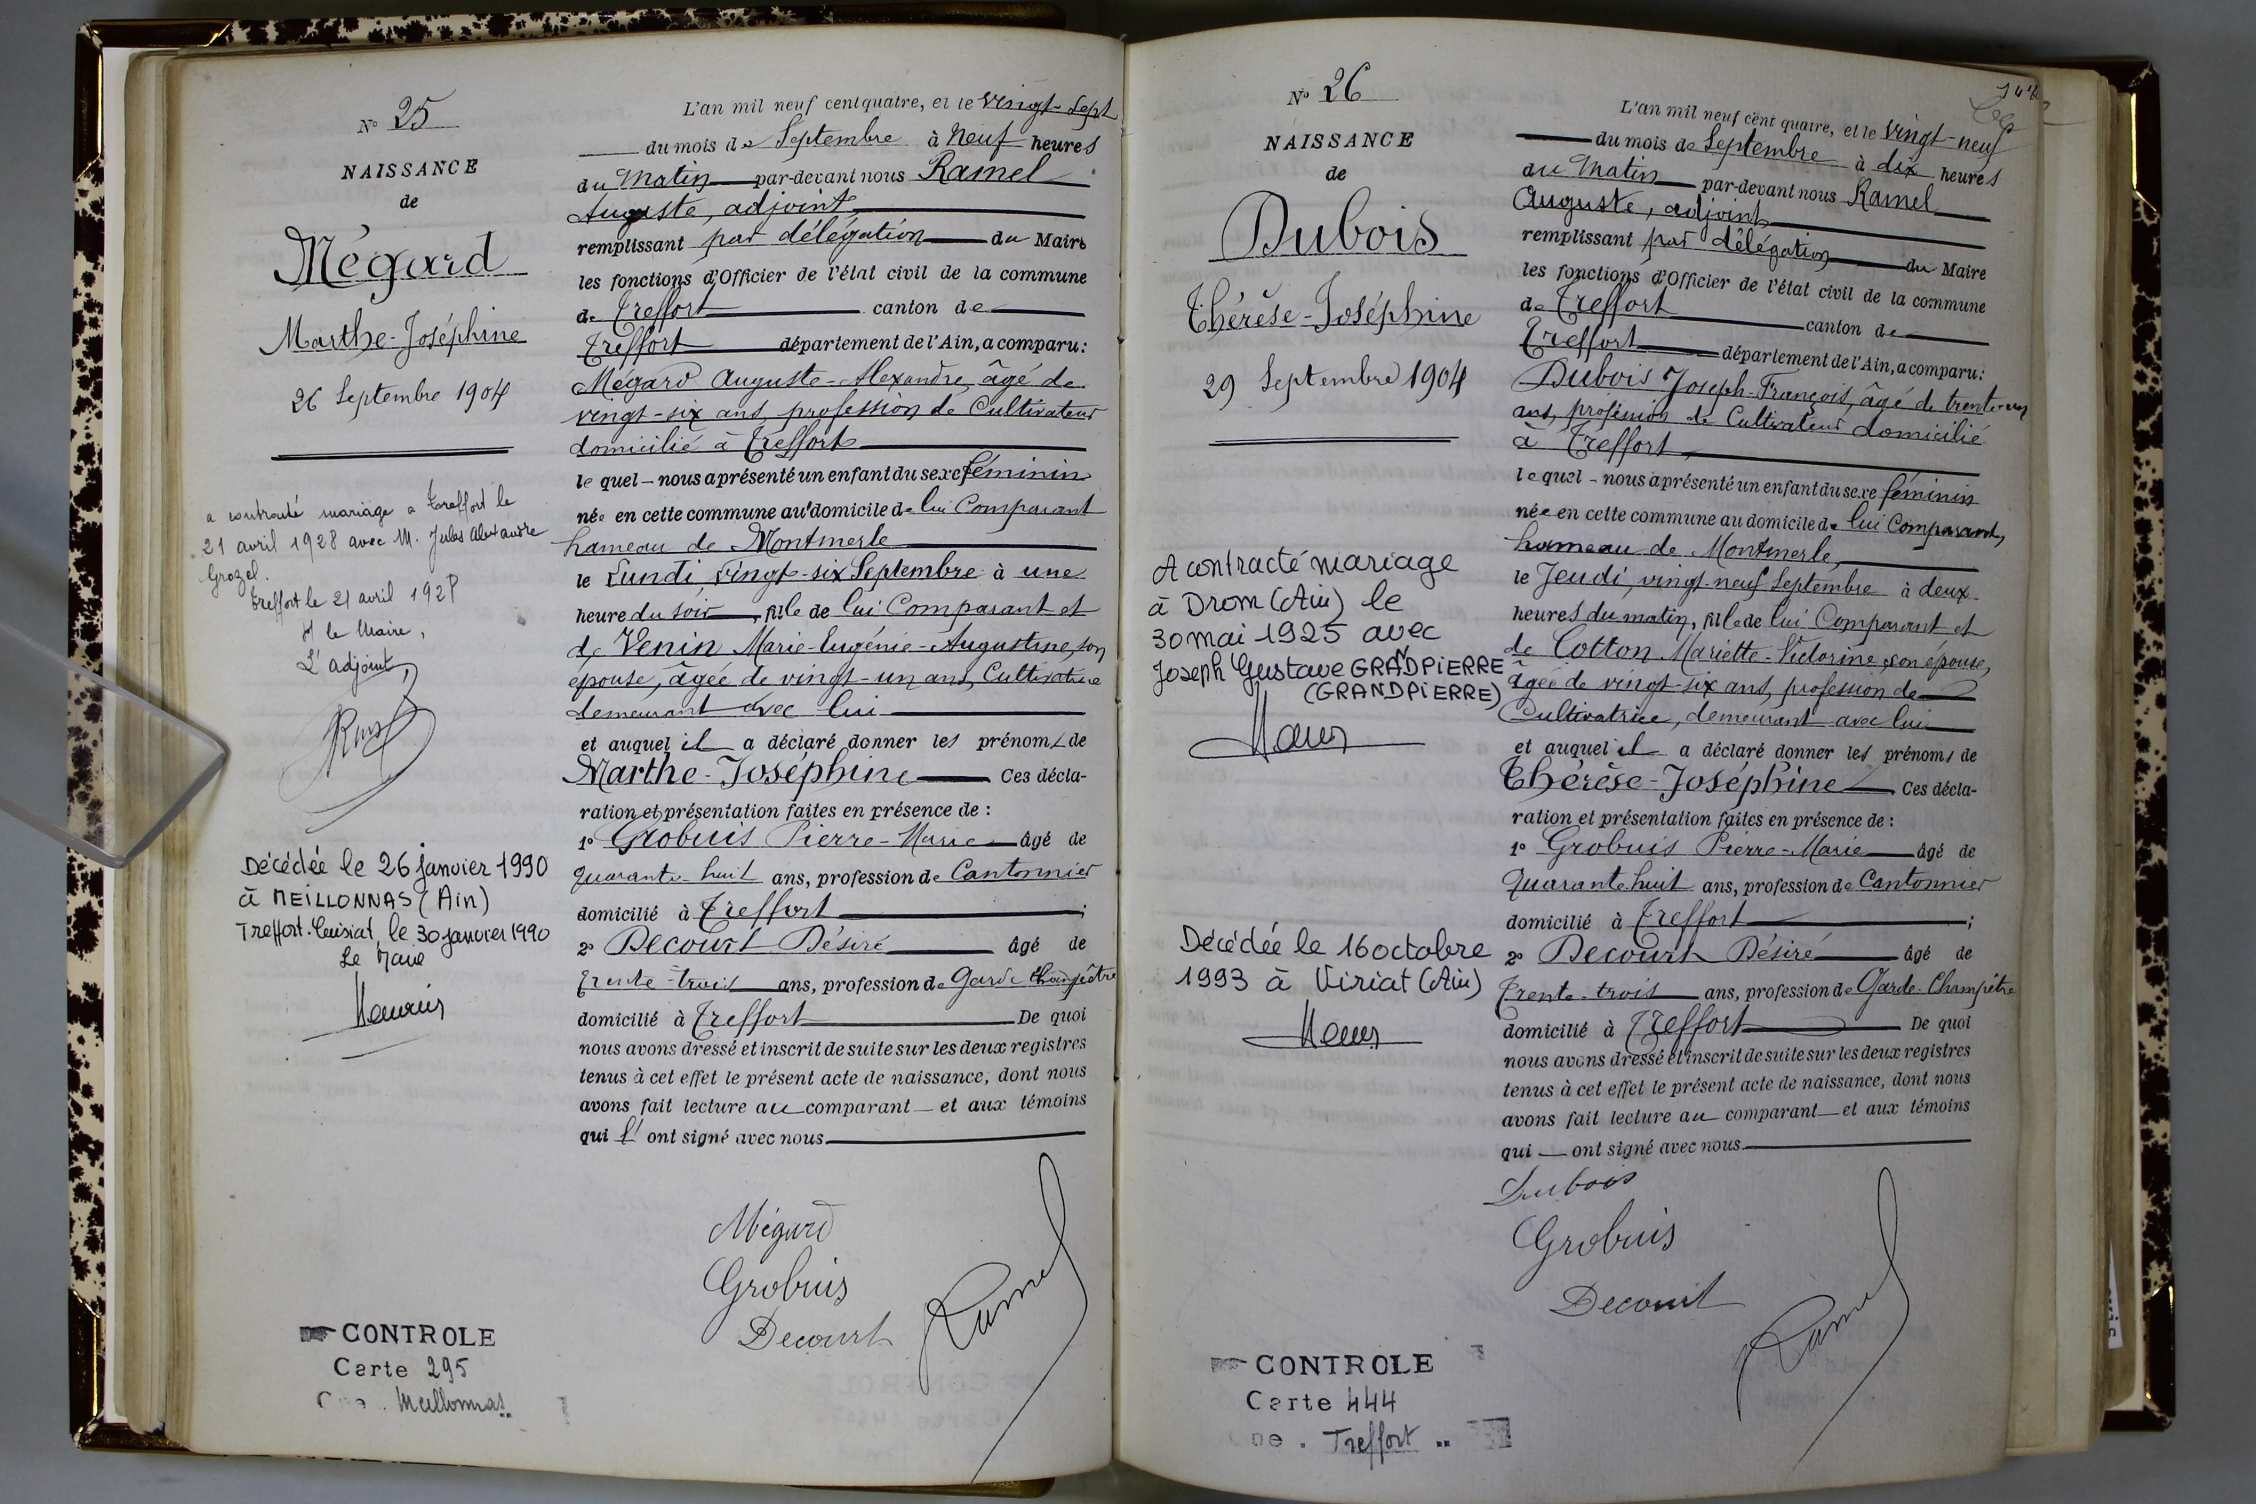 N° 25
NAISSANCE
de
Mégard
Marthe-Joséphine
26 Septembre 1904
a contracté mariage a Treffort le
21 avril 1928 avec M. Jules Alexandre
Grozel.
Treffort le 21 avril 1928
le Maire,
L'adjoint,
Décédée le 26 janvier 1990
à MEILLONNAS (Ain)
Treffort-Cuisiat, le 30 janvier 1990
Le Maire
CONTROLE
Carte 295
Meillonnas
L'an mil neuf cent quatre, et le vingt-sept
du mois de Septembre à neuf heures
du Matin par-devant nous Ramel
Auguste, adjoint,
remplissant par délégation du Maire
les fonctions d'Officier de l'état civil de la commune
de Treffort canton de
Treffort département de l'Ain, a comparu:
Mégard Auguste-Alexandre, âgé de
vingt-six ans, profession de Cultivateur
domicilié à Treffort
lequel - nous a présenté un enfant du sexe féminin
née en cette commune au domicile de lui Comparant
hameau de Montmerle
le Lundi vingt-six Septembre à une
heure du soir, fille de lui Comparant et
de Venin Marie-Eugénie-Augustine, son
épouse, âgée de vingt-un ans, Cultivatrice
demeurant avec lui
et auquel il a déclaré donner les prénoms de
Marthe-Joséphine Ces décla-
ration et présentation faites en présence de :
1° Grobuis Pierre-Marie âgé de
quarante-huit ans, profession de Cantonnier
domicilié à Treffort ;
2° Decourt Désiré âgé de
trente-trois ans, profession de Garde Champêtre
domicilié à Treffort De quoi
nous avons dressé et inscrit de suite sur les deux registres
tenus à cet effet le présent acte de naissance, dont nous
avons fait lecture au comparant et aux témoins
qui l'ont signé avec nous
Mégard
Grobuis
Decourt
Ramel
N° 26
NAISSANCE
de
Dubois
Thérèse-Joséphine
29 Septembre 1904
A contracté mariage
à Drom (Ain) le
30 mai 1925 avec
Joseph Gustave GRANDPIERRE
(GRANDPIERRE)
Décédée le 16 octobre
1993 à Viriat (Ain)
CONTROLE
Carte 444
Treffort
L'an mil neuf cent quatre, et le vingt-neuf
du mois de Septembre à dix heures
du Matin par-devant nous Ramel
Auguste, adjoint
remplissant par délégation du Maire
les fonctions d'Officier de l'état civil de la commune
de Treffort canton de
Treffort département de l'Ain, a comparu:
Dubois Joseph-François, âgé de trente-un
ans, profession de Cultivateur domicilié
à Treffort,
lequel - nous a présenté un enfant du sexe féminin
née en cette commune au domicile de lui Comparant,
hameau de Montmerle,
le Jeudi, vingt-neuf Septembre à deux
heures du matin, fille de lui Comparant et
de Cotton Mariette-Victorine, son épouse,
âgée de vingt-six ans, profession de
Cultivatrice, demeurant avec lui
et auquel il a déclaré donner les prénoms de
Thérèse-Joséphine Ces décla-
ration et présentation faites en présence de :
1° Grobuis Pierre-Marie âgé de
Quarante huit ans, profession de Cantonnier
domicilié à Treffort ;
2° Decourt Désiré âgé de
Trente-trois ans, profession de Garde-Champêtre
domicilié à Treffort De quoi
nous avons dressé et inscrit de suite sur les deux registres
tenus à cet effet le présent acte de naissance, dont nous
avons fait lecture au comparant et aux témoins
qui ont signé avec nous
Dubois
Grobuis
Decourt
Ramel